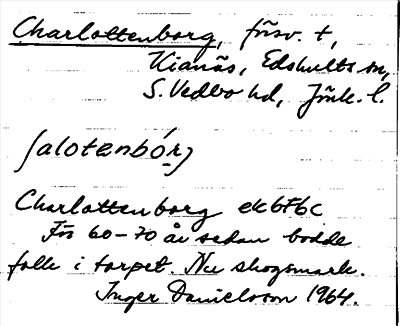 Charlottenborg, försv. t,
Kianäs, Edshults sn,
S. Vedbo hd, Jönk. l.
ʃalotenbórj
Charlottenborg ek6f6c
För 60-70 år sedan bodde
folk i torpet. Nu skogsmark.
Inger Danielsson 1964.